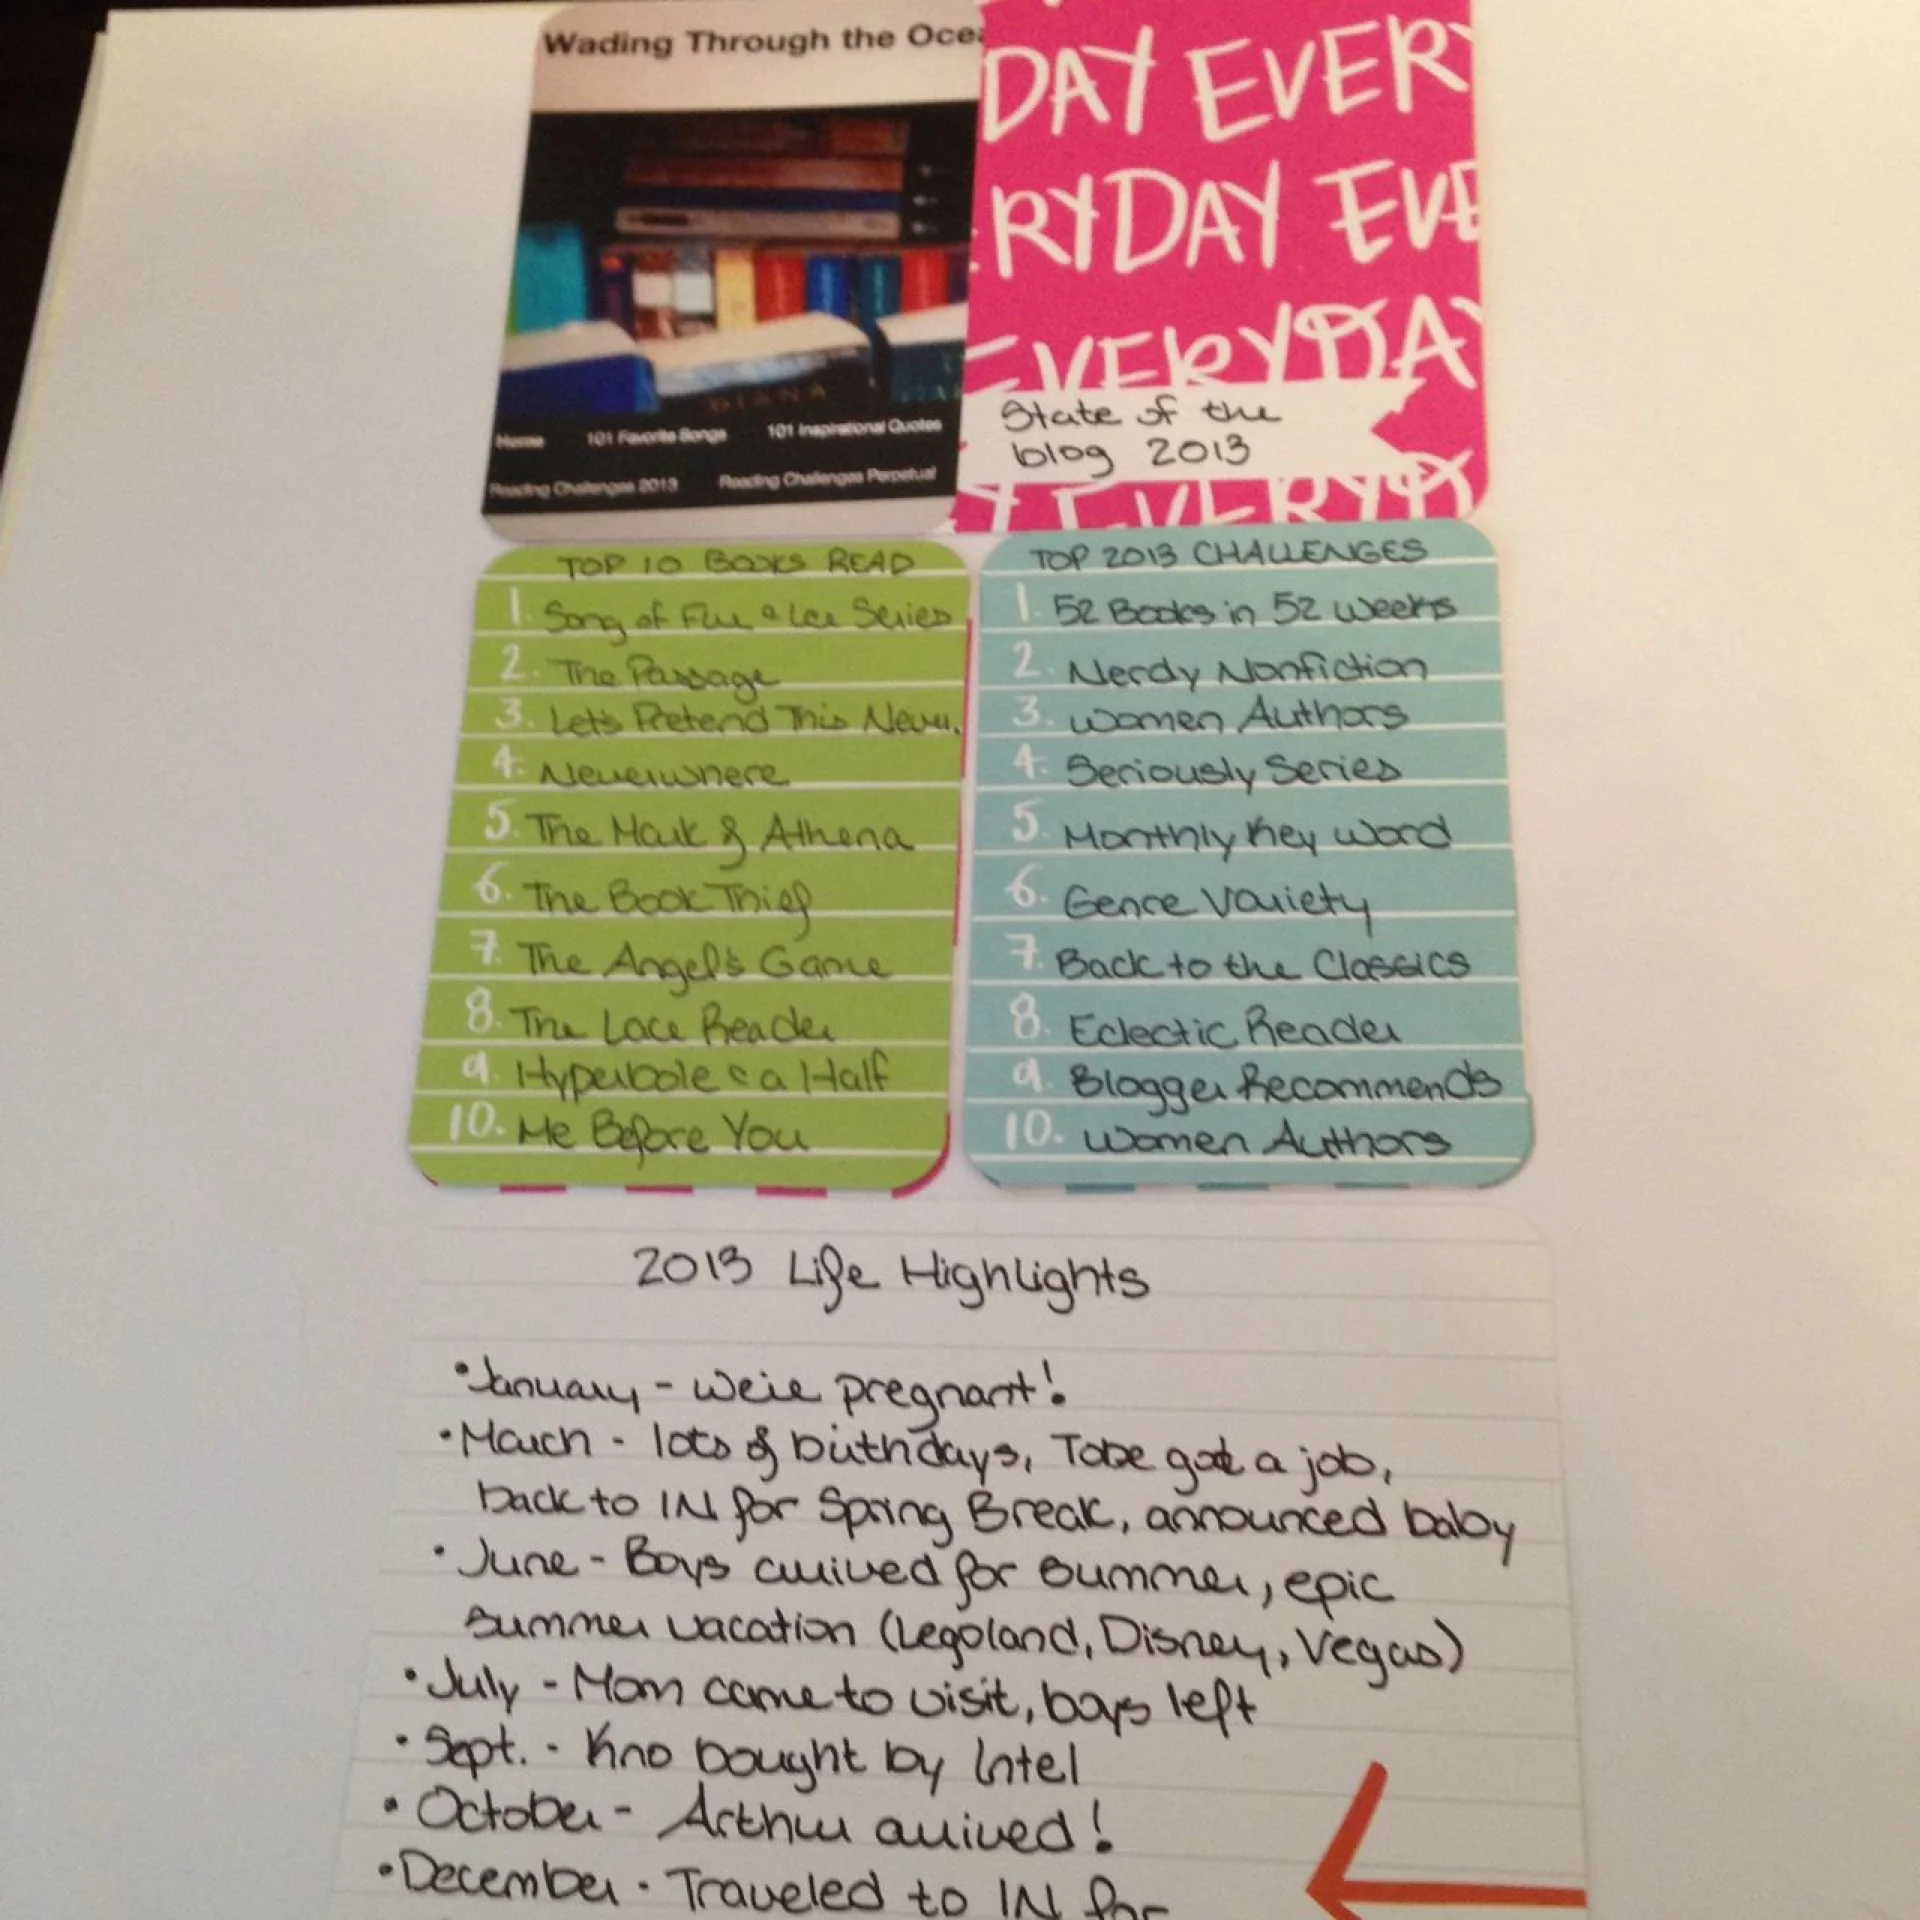 Wading Through the Ocea
Home 101 Favorite Songs 101 Inspirational Quotes
Reading Challenges 2013 Reading Challenges Perpetual
DAY EVERY
RYDAY EVE
EVERYDAY
State of the
blog 2013
Y EVERYD
TOP 10 BOOKS READ
1. Song of Fire & Ice Series
2. The Passage
3. Let's Pretend This Never.
4. Neverwhere
5. The Mark of Athena
6. The Book Thief
7. The Angel's Game
8. The Lace Reader
9. Hyperbole & a Half
10. Me Before You
TOP 2013 CHALLENGES
1. 52 Books in 52 Weeks
2. Nerdy Nonfiction
3. Women Authors
4. Seriously Series
5. Monthly Key Word
6. Genre Variety
7. Back to the Classics
8. Eclectic Reader
9. Blogger Recommends
10. Women Authors
2013 Life Highlights
• January - We're pregnant!
• March - lots of birthdays, Tobe got a job,
back to IN for Spring Break, announced baby
• June - Boys arrived for summer, epic
summer vacation (Legoland, Disney, Vegas)
• July - Mom came to visit, boys left
• Sept. - Kno bought by Intel
• October - Arthur arrived!
• December - Traveled to IN for